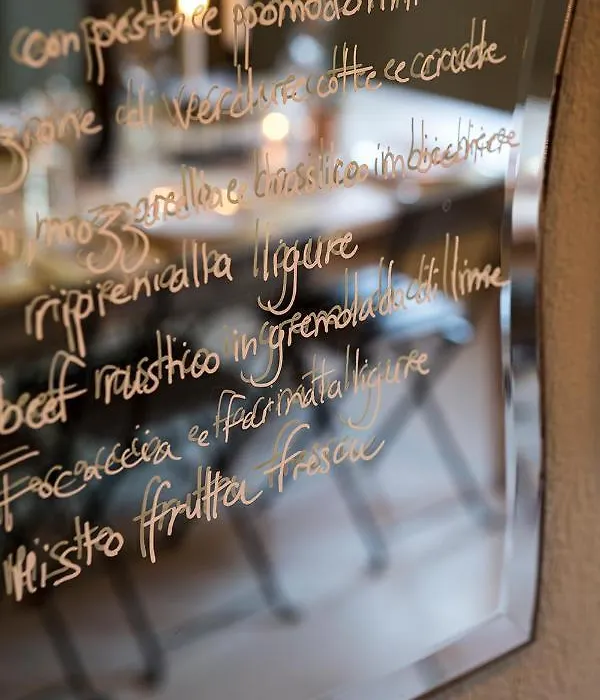 con pesto e pomodorini
zione di verdure cotte e crude
ni, mozzarella e basilico in bicchiere
ripieni alla ligure
beef rustico in gremolada di lime
Focaccia e farinata ligure
Misto frutta fresca